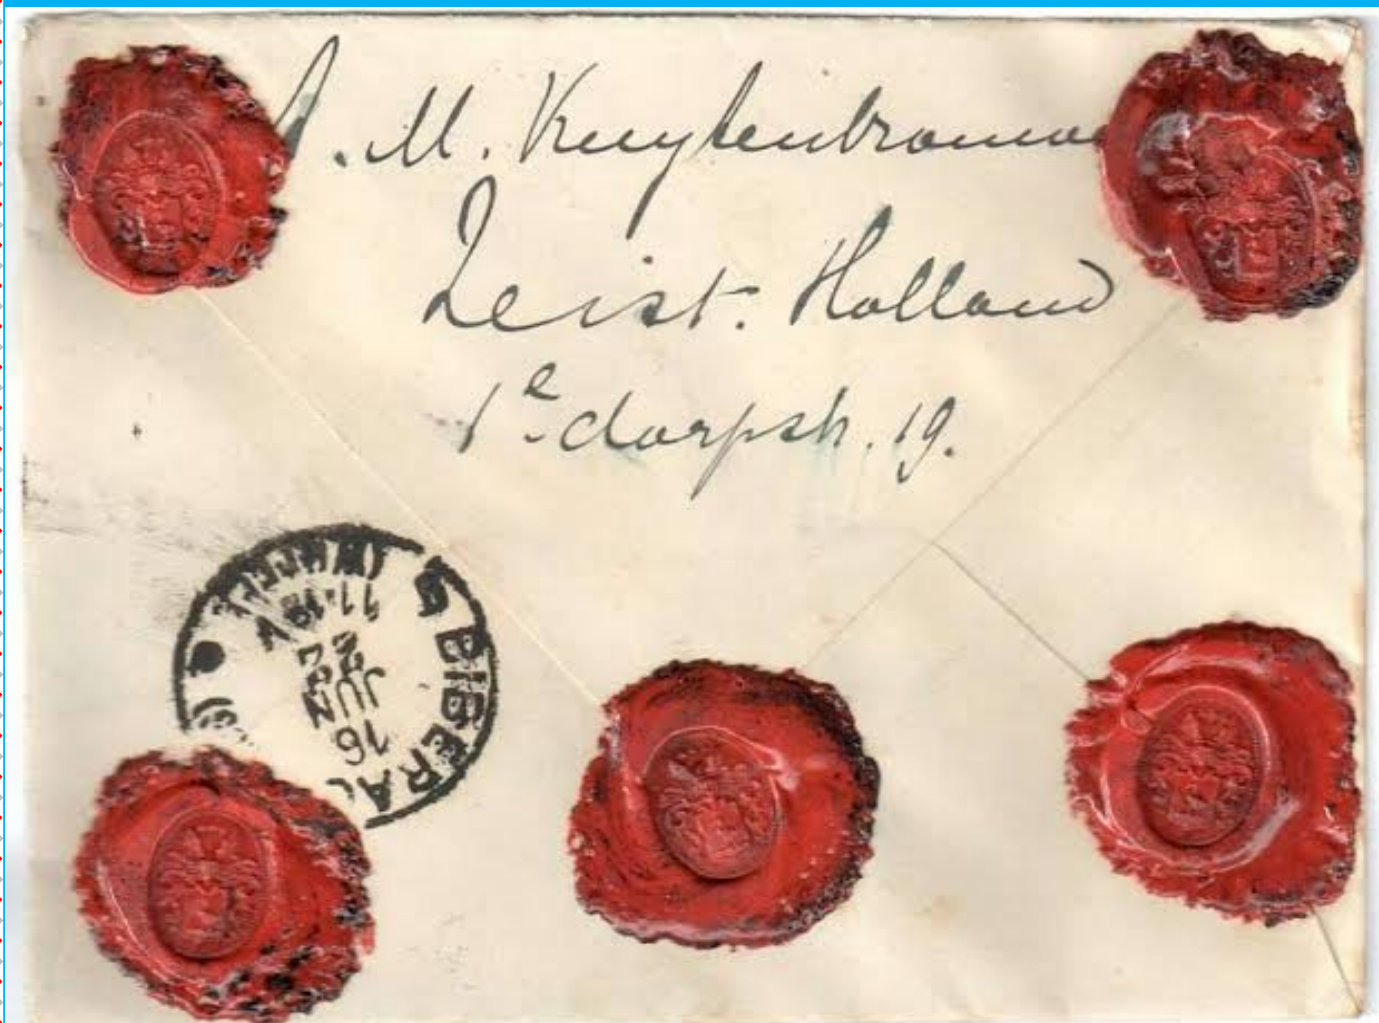 M. Kuytenbrouwe
Zeist. Holland
1e dorpstr. 19.
BIBERAC
16
JUN